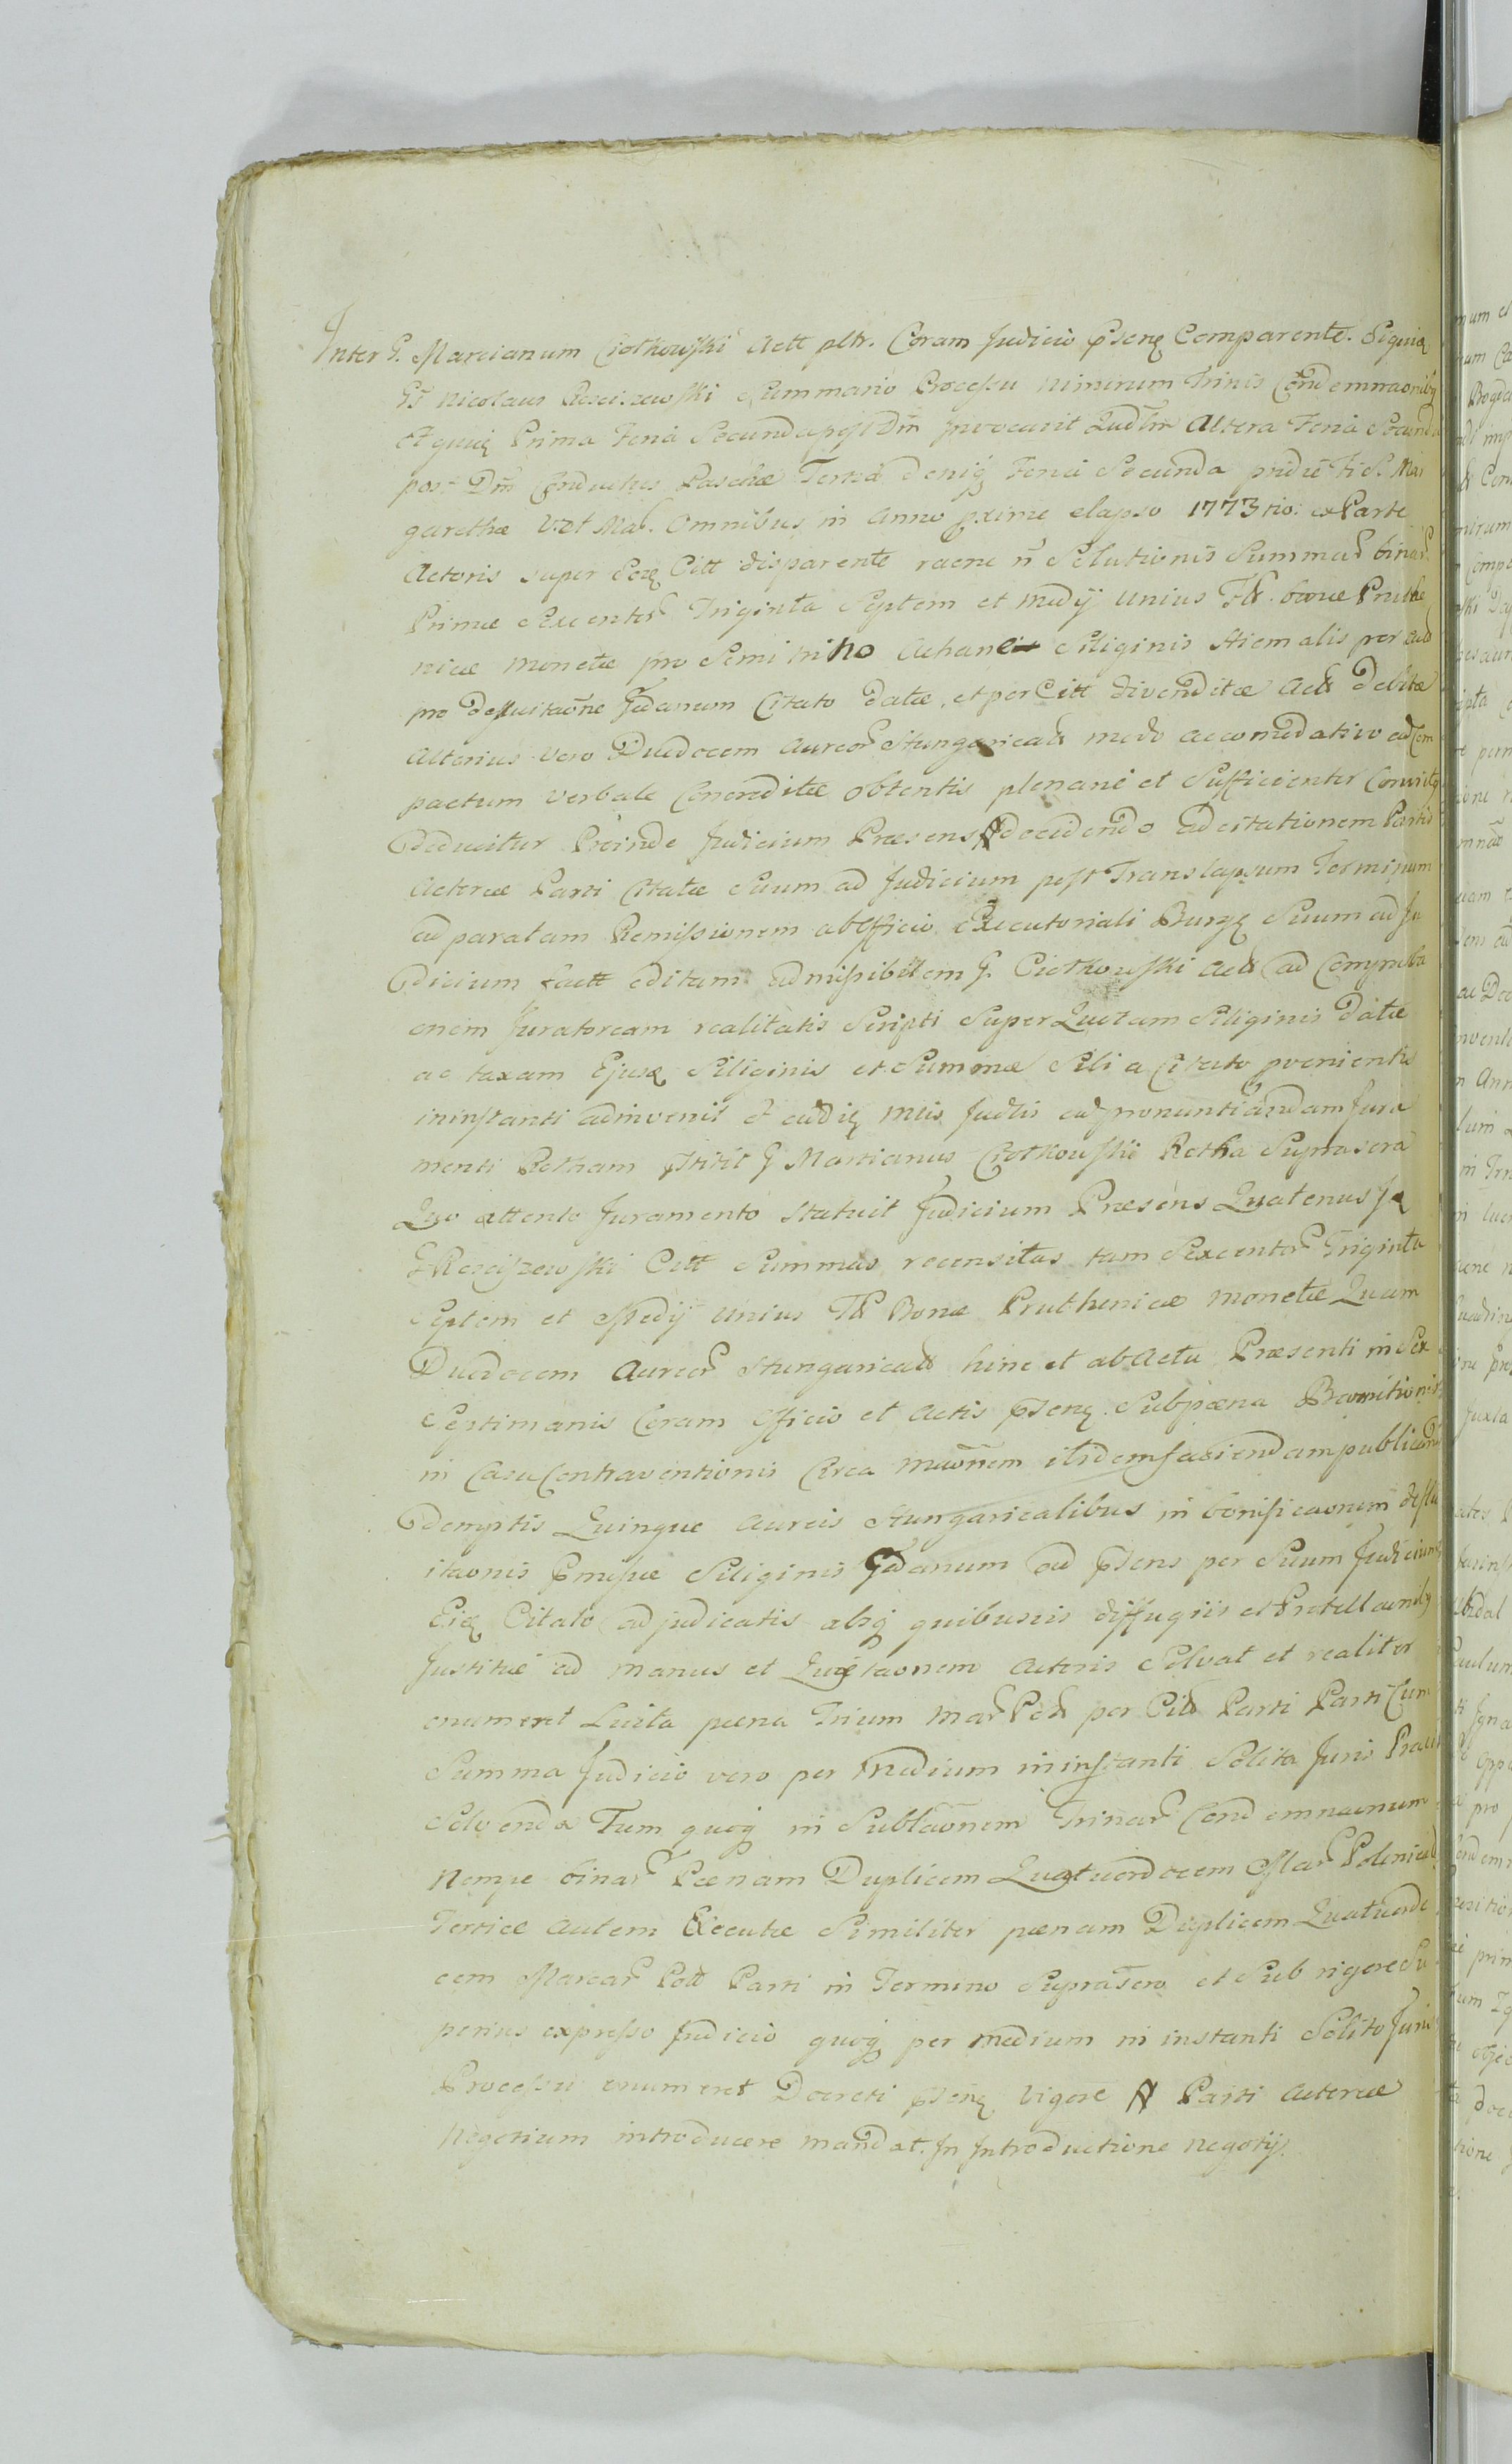 Inter G. Marcianum Ciotkowski Actt pltr. Coram Judicio pñsenꝫ Comparente. Siquidꝫ
Gs Nicolaus Rosciszewski Summario Processu nimirum Trinis Condemnaonibꝫ
Et quidꝫ Prima Feria Secunda post Dm̃ Invocavit Qudlr Altera Feria Secunda
post Dm̃ Conductus Paschæ Tertia deniqꝫ Feria Secunda pridie Fti S. Mar
garethæ V. et Mar. Omnibus in Anno pxime elapso 1773tio. ex Parte
Actoris super Eodꝫ Citt disparente raone ñ Solutionis Summaꝝ binaꝝ
Primæ Sexcentoꝝ Triginta Septem et Medij Unius Flꝝ bonæ Pruthe
nicæ monetæ pro Semi Achane Siliginis Hiemalis per Actt
pro defluitaõne Gedanum Citato datæ, et per Citt divenditæ Actt debitæ
Alterius vero Duodecem Aureoꝝ Hungarical modo accomodativo ad Com
pactum verbale Concreditæ obtentis plenarie et Sufficienter Convictꝫ
Deducitur Proinde Judicium Præsens decidendo ad citationem Partis
Actoreæ Parti Citatæ Suum ad Judicium post Translapsum Terminum
ad paratam Remissionem ab Officio Executoriali Burgꝫ Suum ad Ju
dicium factt editam admissibilem G. Ciotkowski Actt ad Comproba
onem Juratoream realitatis Scripti Super Quotam Siliginis datæ
ac taxam Ejusdꝫ Siliginis et Summæ Sili a Citato provenientis
in instanti adinvenit Judtis ad pronuntiandam Jura
menti Rotham Stitit G Martianus Ciotkowski Rotha Suprascra
Quo attento Juramento Statuit Judicium Præsens Quatenus
G Rosciszewski Citt Summas recensitas tam Sexcentoꝝ Triginta
Septem et Medij Unius Flꝝ Bonæ Pruthenicæ Monetæ Quam
Duodecem Aureoꝝ Hungarical hinc et ab Actu Præsenti in Sex
Septimanis Coram Officio et Actis pñsenꝫ Sub pœna Bannitionis
in Casu Contraventionis Circa itidem faciendam publicand
demptis Quinque Aureis Hungaricalibus in bonificaonem deflu
itaonis pmissæ Siliginis Gedanum ad pñsens per Suum Judicium
Eidꝫ Citato adjudicatis absqꝫ quibusvis diffugiis et Protellaonibꝫ
Justitiæ ad manus et Quietaonem Actoris Solvat et realiter
enumeret Luita pœna Trium Marꝝ Poll per Citt Parti Parti Cum
Summa Judicio vero per Medium in instanti Solita Juris Praxi
Solvenda Tum quoqꝫ in Sublaõnem Trinarꝝ Condemnaonum
Nempe binarꝝ Pœnam Duplicem Quatuordecem Marꝝ Polonical
Tertiæ autem Executæ Similiter pœnam Duplicem Quatuorde
cem Marcarꝝ Poll Parti in Termino Suprascro et Sub rigore Su
perius expresso Judicio quoqꝫ per Medium in instanti Solito Juris
Processu enumeret Decreti pñsenꝫ vigore Parti Actoreæ
Negotium introducere mandat. In Introductione Negotij.